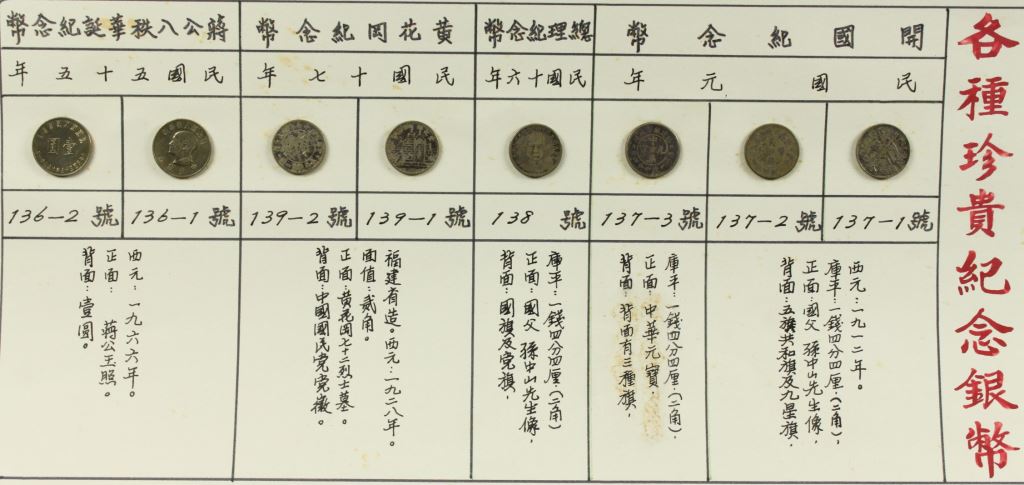 各種珍貴紀念銀幣
開國紀念幣
民國元年
137-1號
137-2號
137-3號
西元：一九一二年。
庫平：一錢四分四厘，(二角)
正面：國父 孫中山先生像，
背面：五族共和旗及九星旗，
庫平：一錢四分四厘，(二角)，
正面：中華元寶，
背面：背面有三種旗，
總理紀念幣
民國十六年
138 號
庫平：一錢四分四厘，(二角)
正面：國父 孫中山先生像，
背面：國旗及党旗，
黃花岡紀念幣
民國十七年
139-1號
139-2號
福建省造。西元：一九二八年。
面值：貳角。
正面：黃花岡七十二烈士墓。
背面：中國國民党党徽。
蔣公八秩華誕紀念幣
民國五十五年
136-1號
136-2 號
西元：一九六六年。
正面： 蔣公玉照。
背面：壹圓。
壹圓